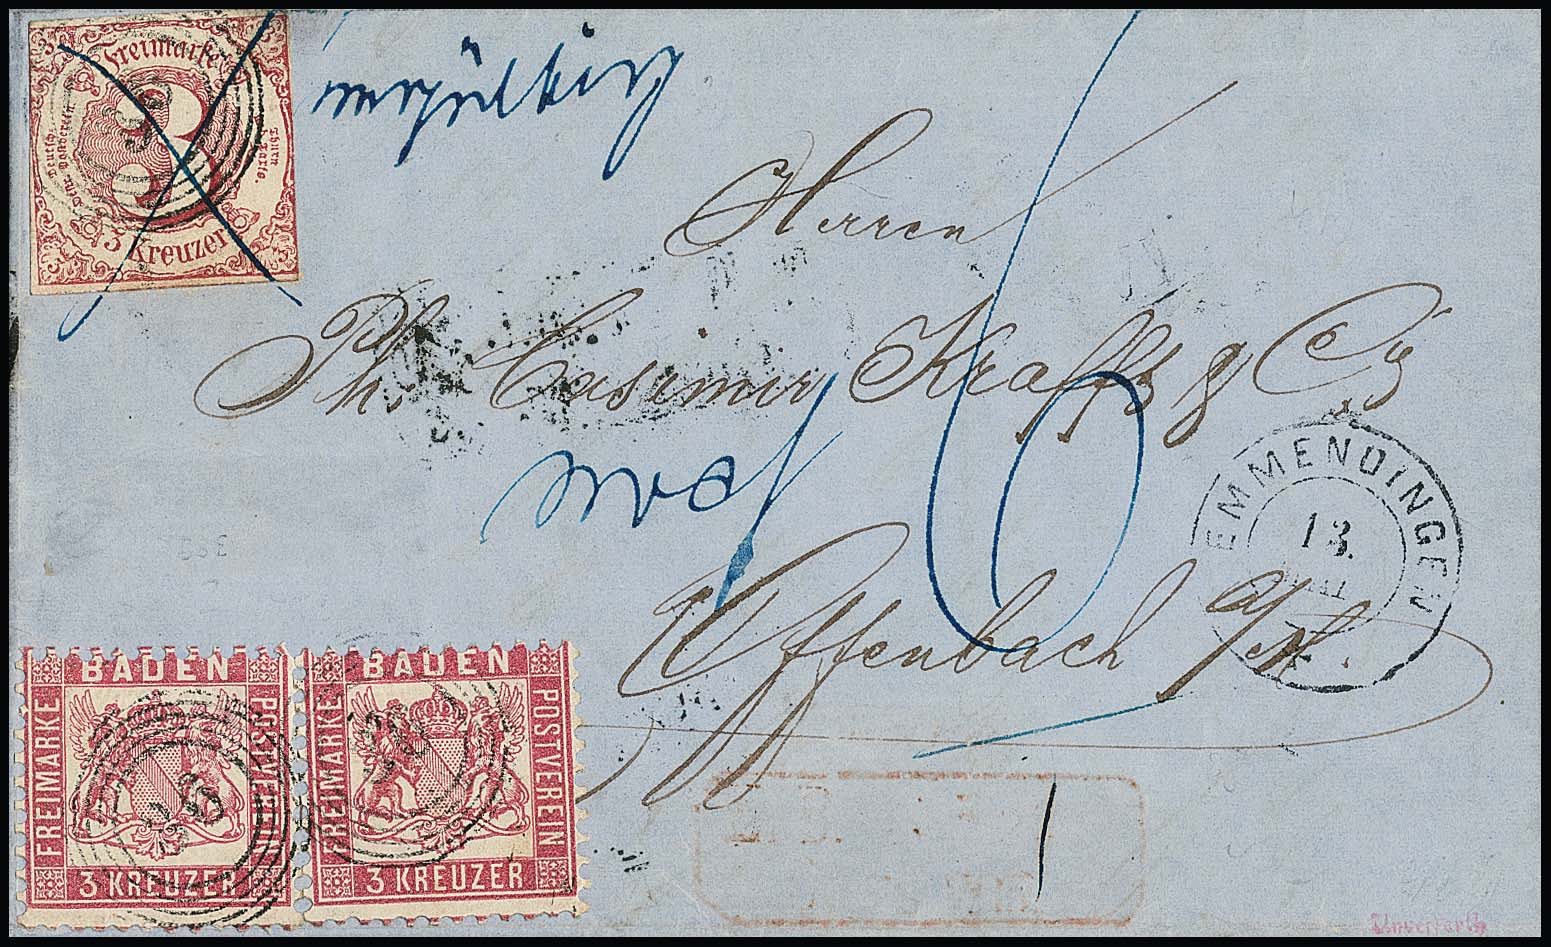 Freimarke
Deutsch. Postverein
Thurn u. Taxis.
3
3 Kreuzer
ungültig
Herren
Ph. Casimir Krafft & Cie
6
Offenbach a/M
EMMENDINGEN
13.
MAI
BADEN
FREIMARKE
POSTVEREIN
3 KREUZER
BADEN
FREIMARKE
POSTVEREIN
3 KREUZER